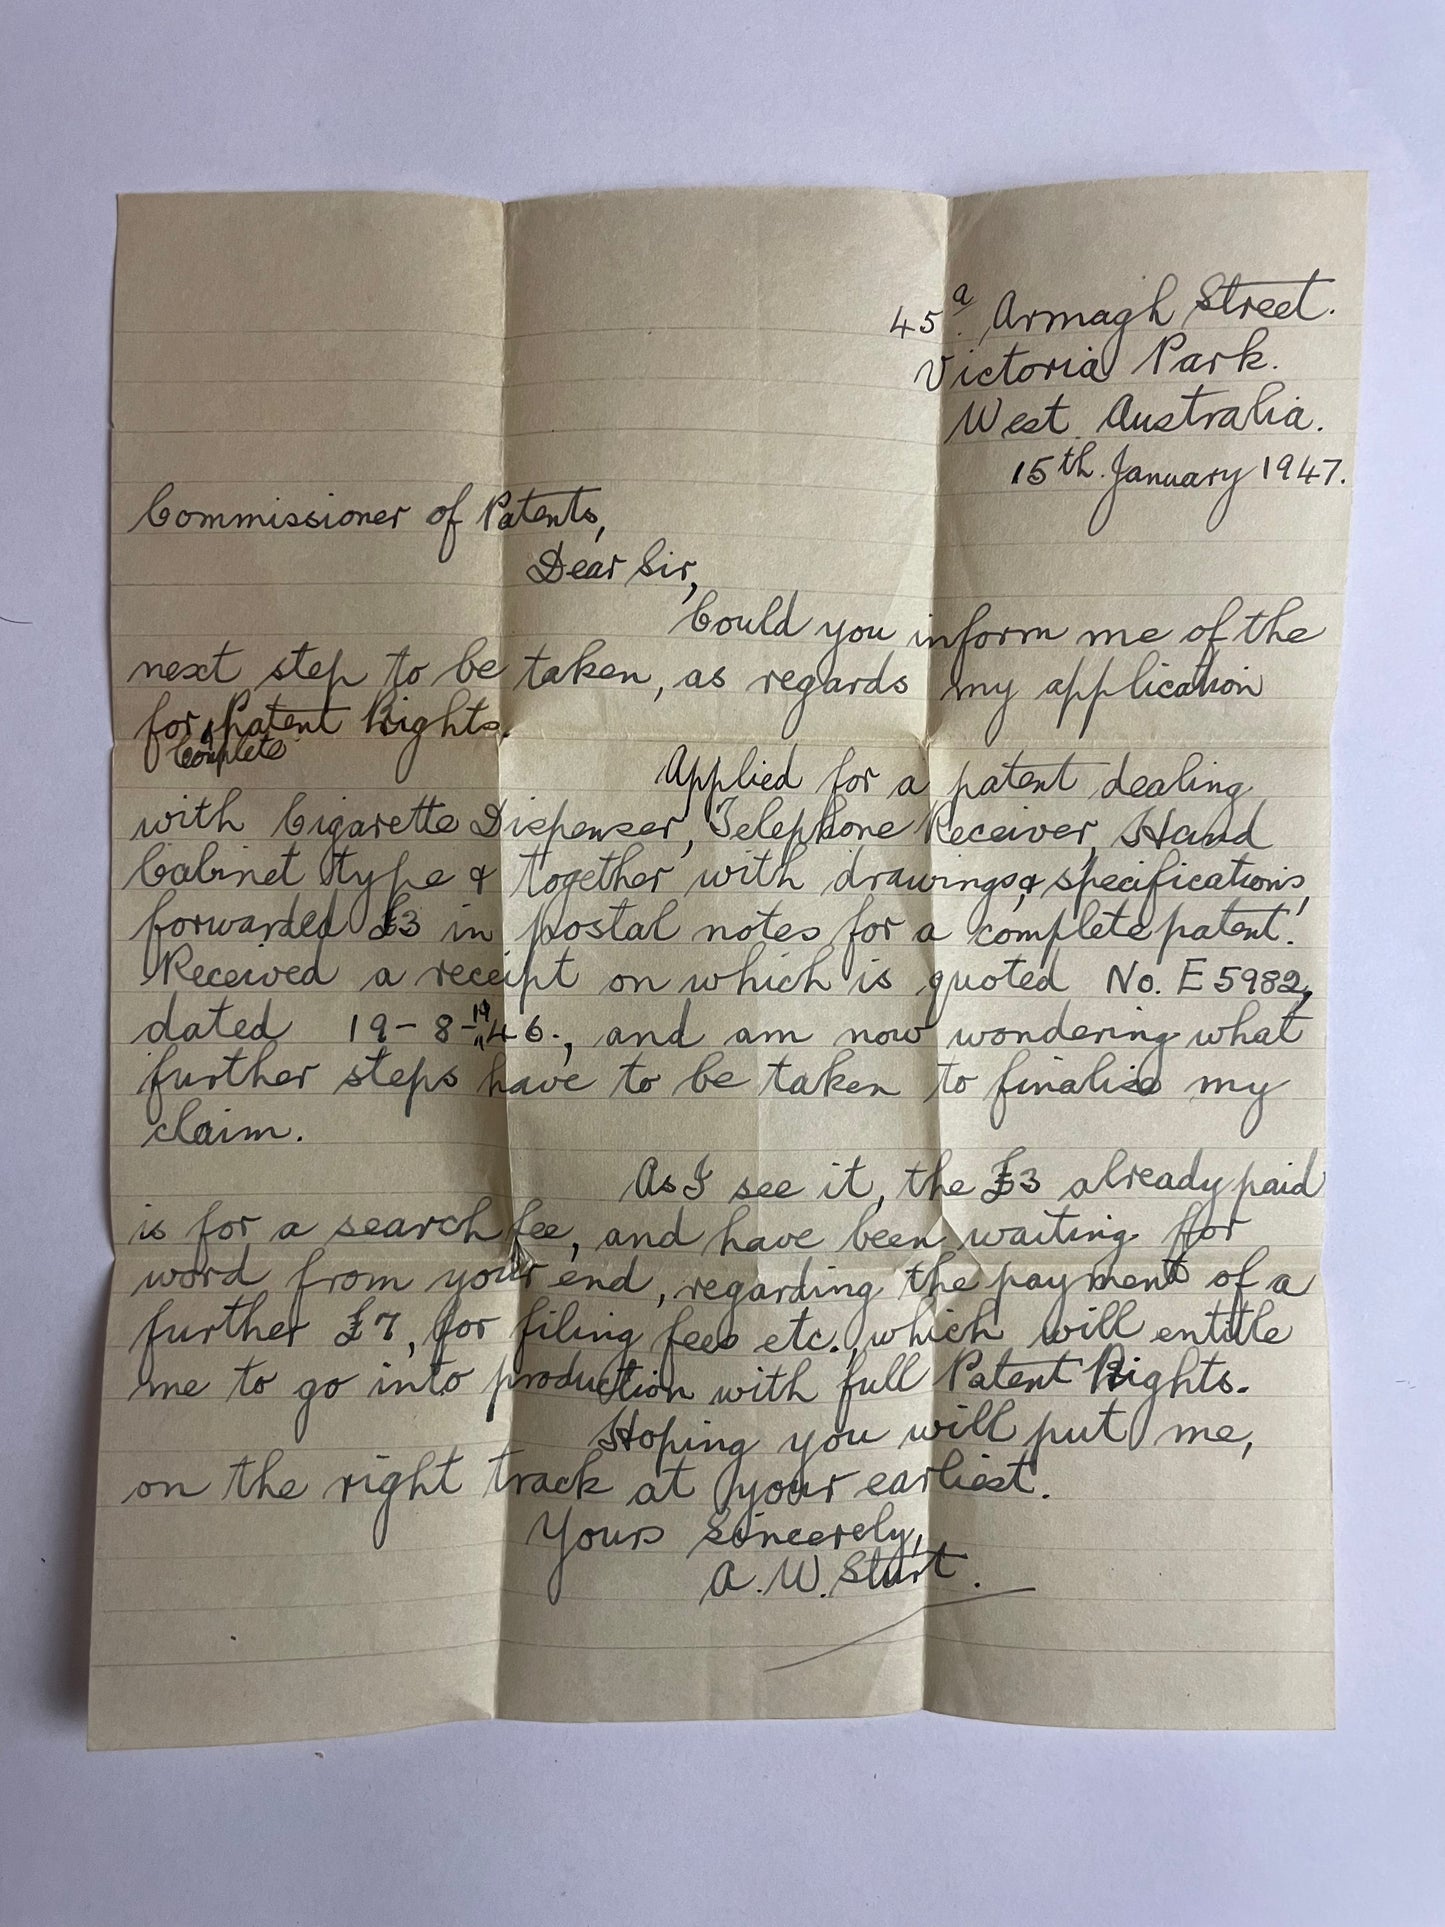 45a. Armagh Street.
Victoria Park.
West Australia.
15th. January 1947.
Commissioner of Patents,
Dear Sir,
Could you inform me of the
next step to be taken, as regards my application
for Complete Patent Rights.
Applied for a patent dealing
with Cigarette Dispenser, Telephone Receiver, Hand
Cabinet type & together with drawings, & specifications,
forwarded £3 in postal notes for a complete patent.
Received a receipt on which is quoted No. E 5982,
dated 19-8-1946., and am now wondering what
further steps have to be taken to finalise my
claim.
As I see it, the £3 already paid
is for a search fee, and have been waiting for
word from your end, regarding the payment of a
further £7, for filing fees etc., which will entitle
me to go into production with full Patent Rights.
Hoping you will put me,
on the right track at your earliest.
Yours Sincerely,
A. W. Sturt.